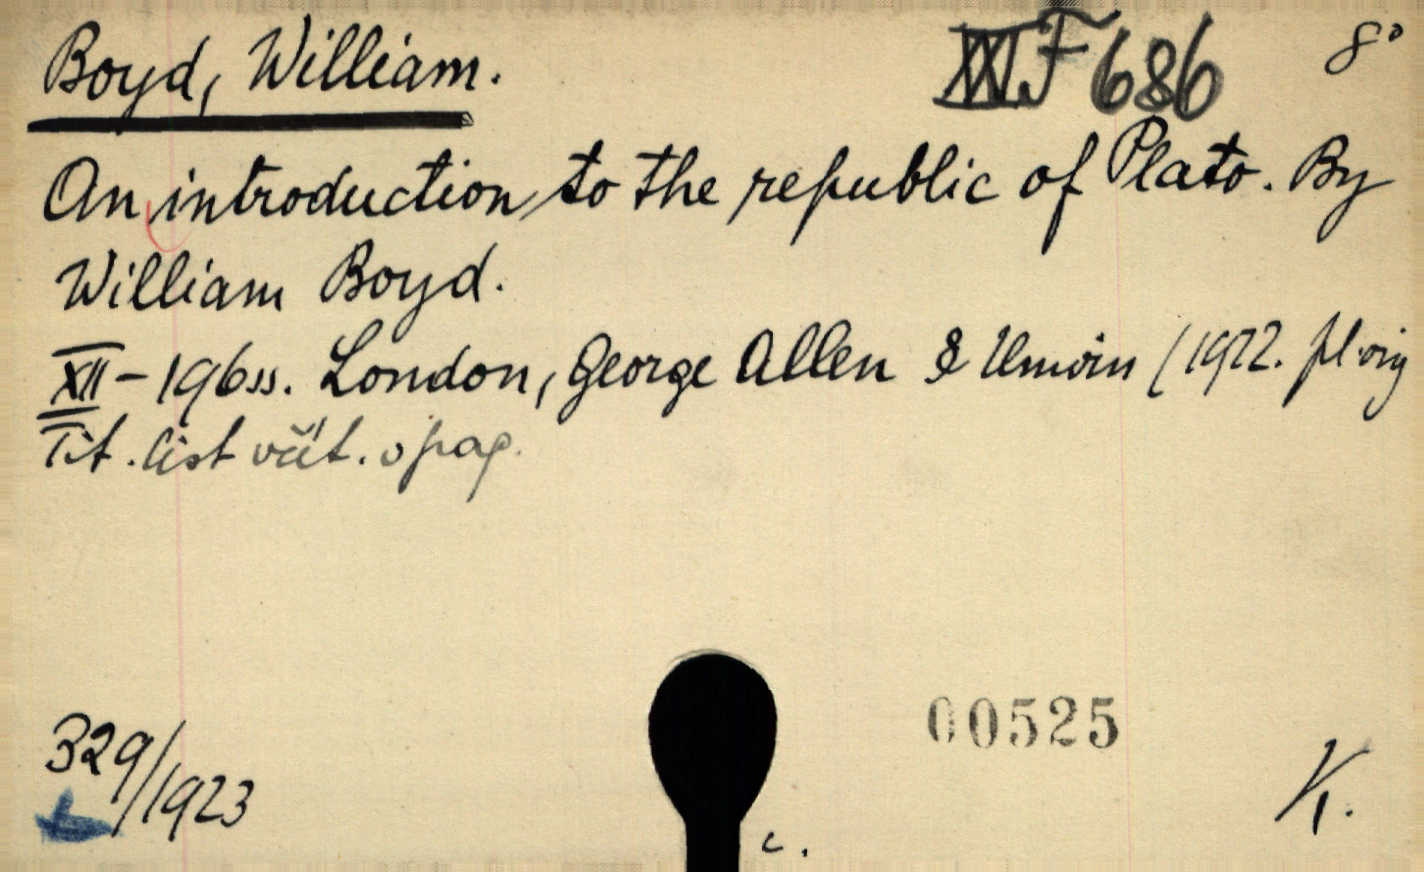 Boyd, William.
XXI F 686
8°
An introduction to the republic of Plato. By
William Boyd.
XII – 196 ss. London, George Allen & Unwin (1922. pl. orig
Tit. list včít. v pag.
00525
329/1923
K.
c.